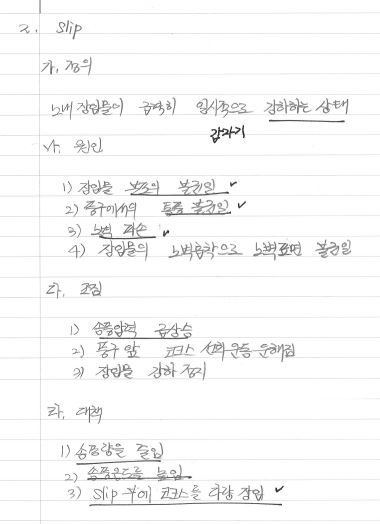 2. Slip
가. 정의
노내 장입물이 급격히 일시적으로 강하하는 상태
갑자기
나. 원인
1) 장입물 분포의 불균일 ✓
2) 풍구에서의 통풍 불균일 ✓
3) 노벽 파손 ✓
4) 장입물의 노벽융착으로 노벽표면 불균일
다. 조짐
1) 송풍압력 급상승
2) 풍구 앞 코크스 선회운동 둔해짐
3) 장입물 강하 정지
라. 대책
1) 송풍량을 줄임
2) 송풍온도를 높임
3) slip 부에 코크스를 다량 장입 ✓